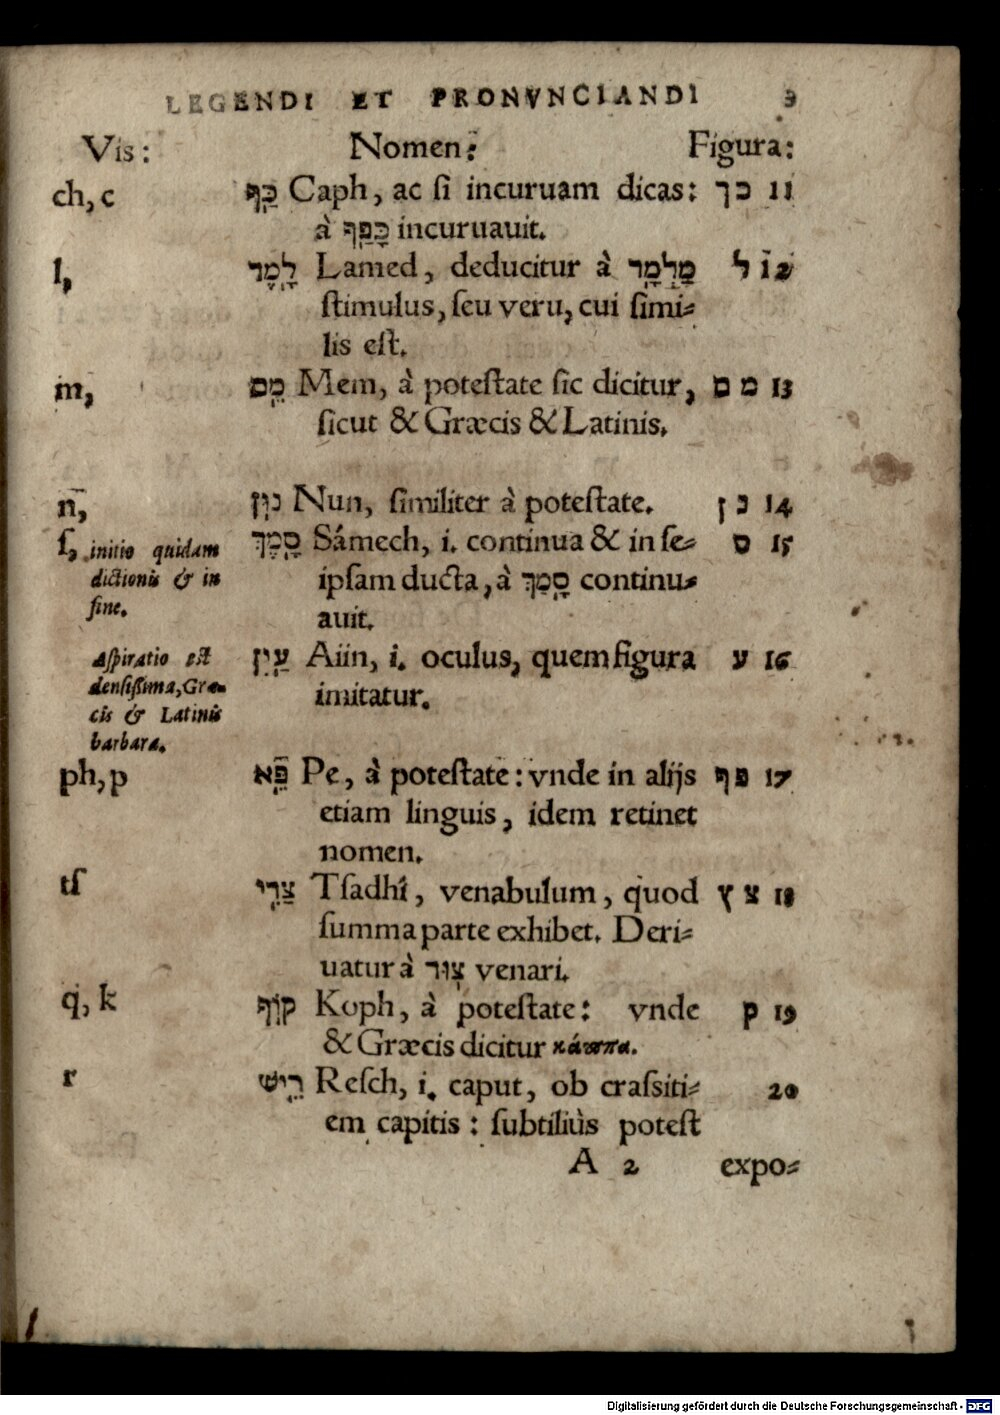 LEGENDI ET PRONVNCIANDI 3
Vis: Nomen: Figura:
ch, c כַּף Caph, ac ſi incuruam dicas: כ ך 11
à כָּפַף incuruauit.
l, לָמֶד Lamed, deducitur à מַלְמָד ל 12
ſtimulus, ſeu veru, cui ſimi-
lis eſt.
m, מֵם Mem, à poteſtate ſic dicitur, מ ם 13
ſicut & Græcis & Latinis.
n, נוּן Nun, ſimiliter à poteſtate. נ ן 14
ſ, initio quidam סָמֶךְ Sámech, i. continua & in ſe- ס 15
dictionis & in ipſam ducta, à סָמַךְ continu-
fine. auit.
Aſpiratio est עַיִן Aiin, i. oculus, quem figura ע 16
denſiſſima, Græ- imitatur.
cis & Latinis
barbara.
ph, p פֵּא Pe, à poteſtate: vnde in alijs פ ף 17
etiam linguis, idem retinet
nomen.
tſ צַדִי Tſadhî, venabulum, quod צ ץ 18
ſumma parte exhibet. Deri-
uatur à צוּד venari.
q, k קוֹף Koph, à poteſtate: vnde ק 19
& Græcis dicitur κάππα.
r רֵישׁ Reſch, i. caput, ob craſsiti- 20
em capitis: ſubtiliùs poteſt
A 2 expo-
Digitalisierung gefördert durch die Deutsche Forschungsgemeinschaft - DFG